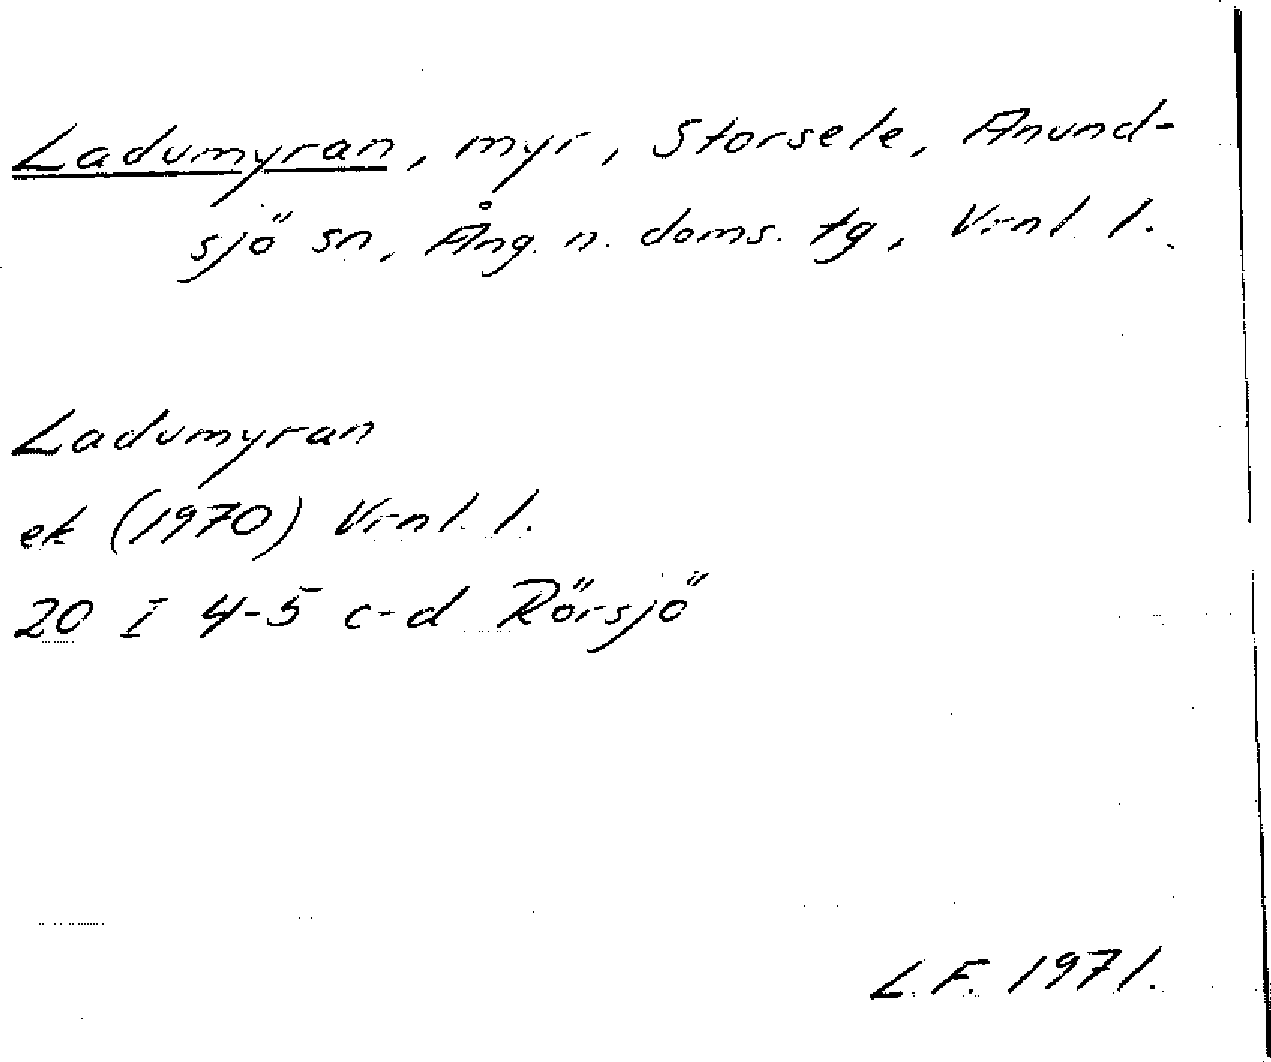 Ladumyran, myr, Storsele, Anund-
sjö sn, Ång. n. doms. tg, Vrnl l.
Ladumyran
ek (1970) Vrnl. l.
20 I 4-5 c-d Rörsjö
L.F. 1971.